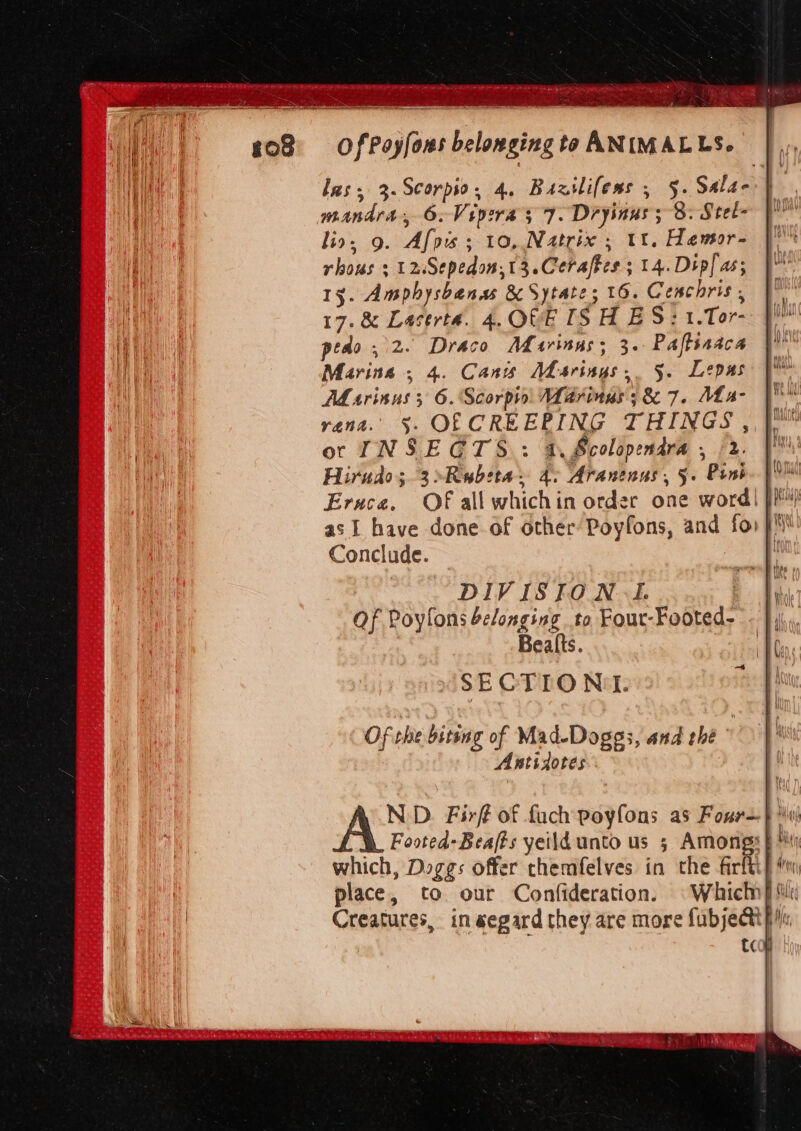 108 Of Poyſons belonging to ANIMALLS.
lus; 3. Scorpio; 4. Bazilifens; 5. Sala-
mandra; 6. Vipera; 7. Dryinus; 8. Stel-
lio; 9. Aſpis; 10. Natrix; 11. Hemor-
rhous; 12. Sepedon; 13. Ceraſtes; 14. Dipſas;
15. Amphysbenas & Sytate; 16. Cenchris;
17. & Lacerta. 4. Of FISHES: 1. Tor-
pedo; 2. Draco Marinus; 3. Paſtinaca
Marina; 4. Canis Marinus; 5. Lepus
Marinus; 6. Scorpio Marinus; & 7. Mu-
rena. 5. Of CREEPING THINGS,
or INSECTS: 1. Scolopendra; 2.
Hirudo; 3. Rubeta; 4. Aranenus; 5. Pini
Eruca. Of all which in order one word
as I have done of other Poyſons, and ſo
Conclude.
DIVISION I.
Of Poyſons belonging to Four-Footed-
Beaſts.
SECTION I.
Of the biting of Mad-Doggs, and the
Antidotes
AND Firſt of ſuch poyſons as Four-
Footed-Beaſts yeild unto us; Among
which, Doggs offer themſelves in the firſt
place, to our Conſideration. Which
Creatures, in regard they are more ſubject
to